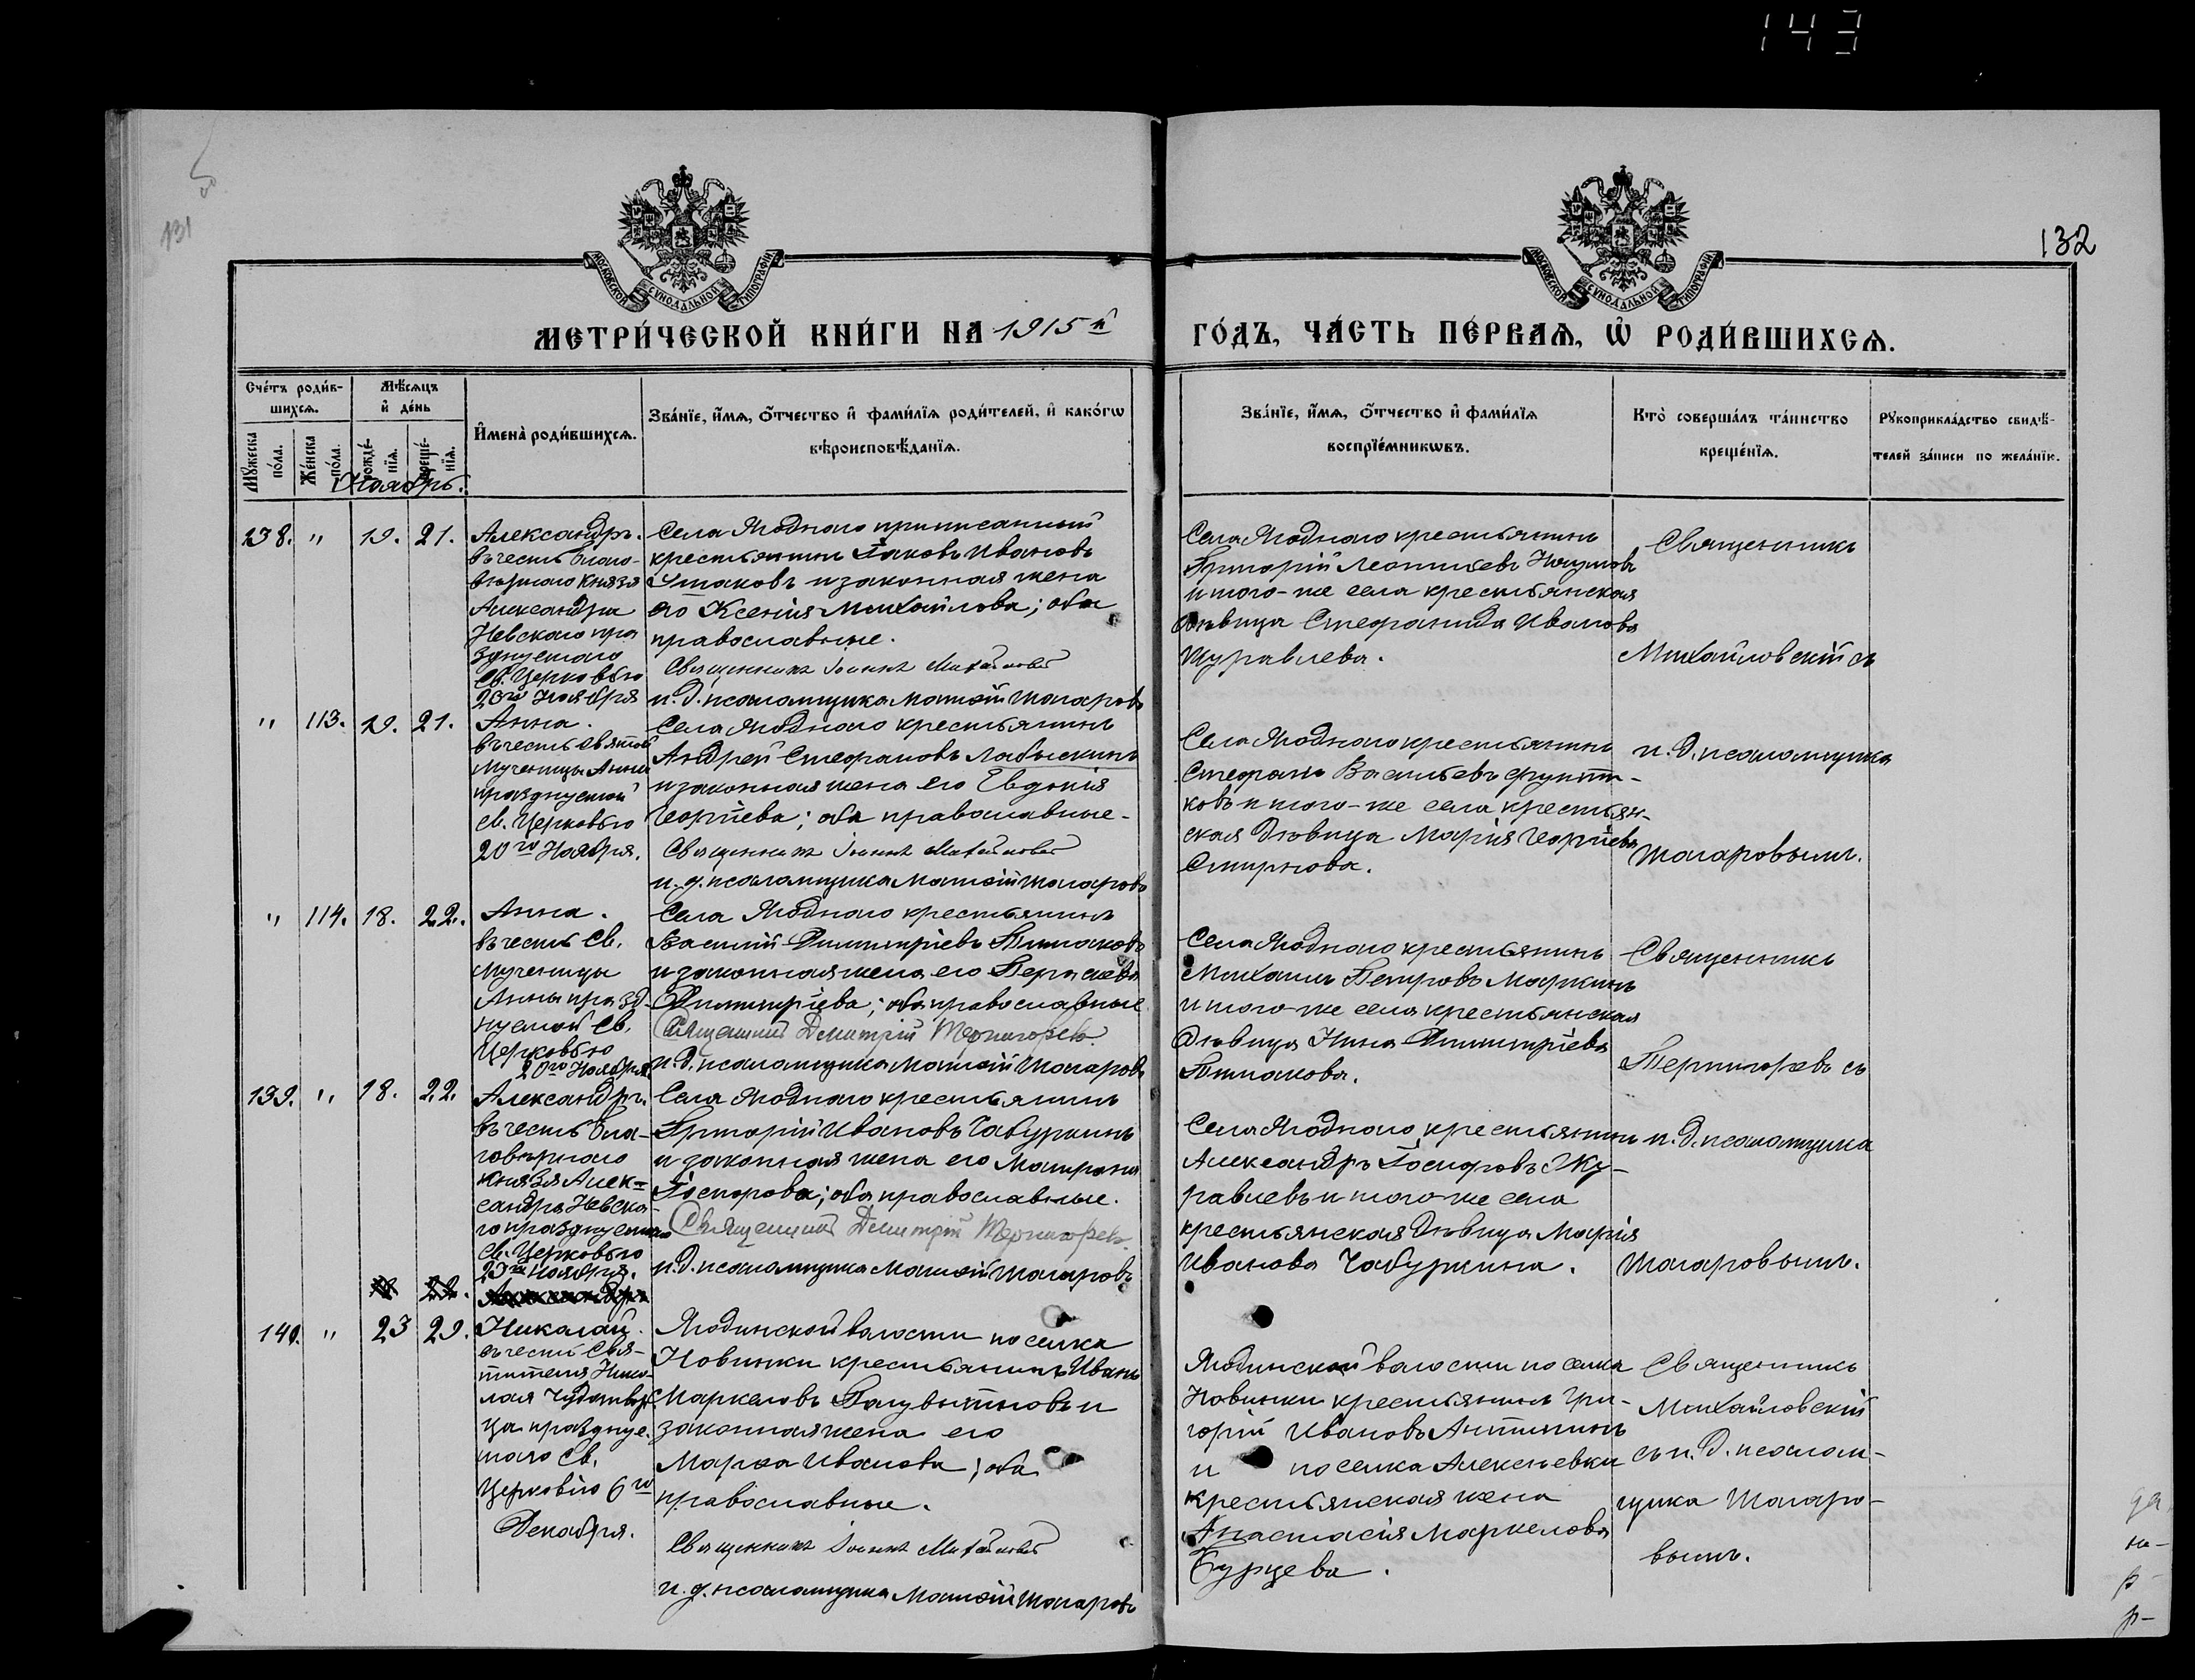 143
131
132
МОСКОВСКОЙ СѴНОДАЛЬНОЙ ТИПОГРАФІИ
МОСКОВСКОЙ СѴНОДАЛЬНОЙ ТИПОГРАФІИ
МЕТРИ́ЧЕСКОЙ КНИ́ГИ НА 1915й
ГО́ДЪ, ЧА́СТЬ ПЕ́РВАѦ, Ѡ҆ РОДИ́ВШИХСѦ.
Сче́тъ роди́в-
шихсѧ.
Мꙋ́жеска по́ла.
Же́нска по́ла.
Мѣ́сѧцъ
и҆ де́нь
рожде́-
нїѧ.
креще́-
нїѧ.
И҆мена̀ роди́вшихсѧ.
Зва́нїе, и҆́мѧ, ѻ҆́тчество и҆ фами́лїѧ роди́телей, и҆ како́гѡ
вѣроисповѣ́данїѧ.
Зва́нїе, и҆́мѧ, ѻ҆́тчество и҆ фами́лїѧ
воспрїе́мникѡвъ.
Кто̀ соверша́лъ та́инство
креще́нїѧ.
Рꙋкоприкла́дство свидѣ́-
телей за́писи по жела́нїю.
Ноябрь.
138. " 19. 21.
Александръ.
въ честь благо-
вѣрнаго князя
Александра
Невскаго пра
зднуемаго
св. Церковью
23го Ноября
Села Ягоднаго приписанный
крестьянинъ Іаковъ Ивановъ
Ушаковъ и законная жена
его Ксенія Михайлова; оба
православные.
Священникъ Іоаннъ Михайловскій
и. д. псаломщика Матѳій Шагаровъ
Села Ягоднаго крестьянинъ
Григорій Леонтіевъ Наумовъ
и того-же села крестьянская
дѣвица Стефанида Иванова
Журавлева.
Священникъ
Михайловскій съ
" 113. 19. 21.
Анна.
въ честь святой
мученицы Анны
празднуемой
св. Церковью
20го Ноября.
Села Ягоднаго крестьянинъ
Андрей Стефановъ Лабыскинъ
и законная жена его Евдокія
Георгіева; оба православные.
Священникъ Іоаннъ Михайловскій
и. д. псаломщика Матѳій Шагаровъ
Села Ягоднаго крестьянинъ
Стефанъ Васильевъ Фунти-
ковъ и того-же села крестьян-
ская дѣвица Марія Георгіева
Смирнова.
и. д. псаломщика
Шагаровымъ.
" 114. 18. 22.
Анна.
въ честь св.
мученицы
Анны празд-
нуемой св.
Церковью
20го Ноября
Села Ягоднаго крестьянинъ
Василій Димитріевъ Пишаковъ
и законная жена его Параскева
Димитріева; оба православные
Священникъ Димитрій Терпигоревъ.
и. д. псаломщика Матѳій Шагаровъ
Села Ягоднаго крестьянинъ
Михаилъ Петровъ Маркинъ
и того-же села крестьянская
дѣвица Нина Димитріева
Пишакова.
Священникъ
Терпигоревъ съ
139. " 18. 22.
Александръ.
въ честь бла-
говѣрнаго
князя Алек-
сандра Невска-
го празднуемаго
св. Церковью
23го Ноября.
Села Ягоднаго крестьянинъ
Григорій Ивановъ Чабуркинъ
и законная жена его Матрона
Іосифова; оба православные.
Священникъ Димитрій Терпигоревъ.
и. д. псаломщика Матѳій Шагаровъ
Села Ягоднаго крестьянинъ
Александръ Іосифовъ Жу-
равлевъ и того-же села
крестьянская дѣвица Марія
Иванова Чабуркина.
и. д. псаломщика
Шагаровымъ.
22. Александръ
140. " 23 29.
Николай.
въ честь Свя-
тителя Нико-
лая Чудотвор-
ца праздуе-
маго Св.
Церковію 6го
Декабря.
Ягодинской волости поселка
Новинки крестьянинъ Иванъ
Маркеловъ Голувитковъ и
законная жена его
Марѳа Иванова; оба
православные.
Священникъ Іоаннъ Михайловскій
и. д. псаломщика Матѳій Шагаровъ
Ягодинской волости поселка
Новинки крестьянинъ Гри-
горій Ивановъ Антипинъ
и поселка Алексѣевки
крестьянская жена
Анастасія Маркелова
Бурцева.
Священникъ
Михайловскій
съ и. д. псалом-
щика Шагаро-
вымъ.